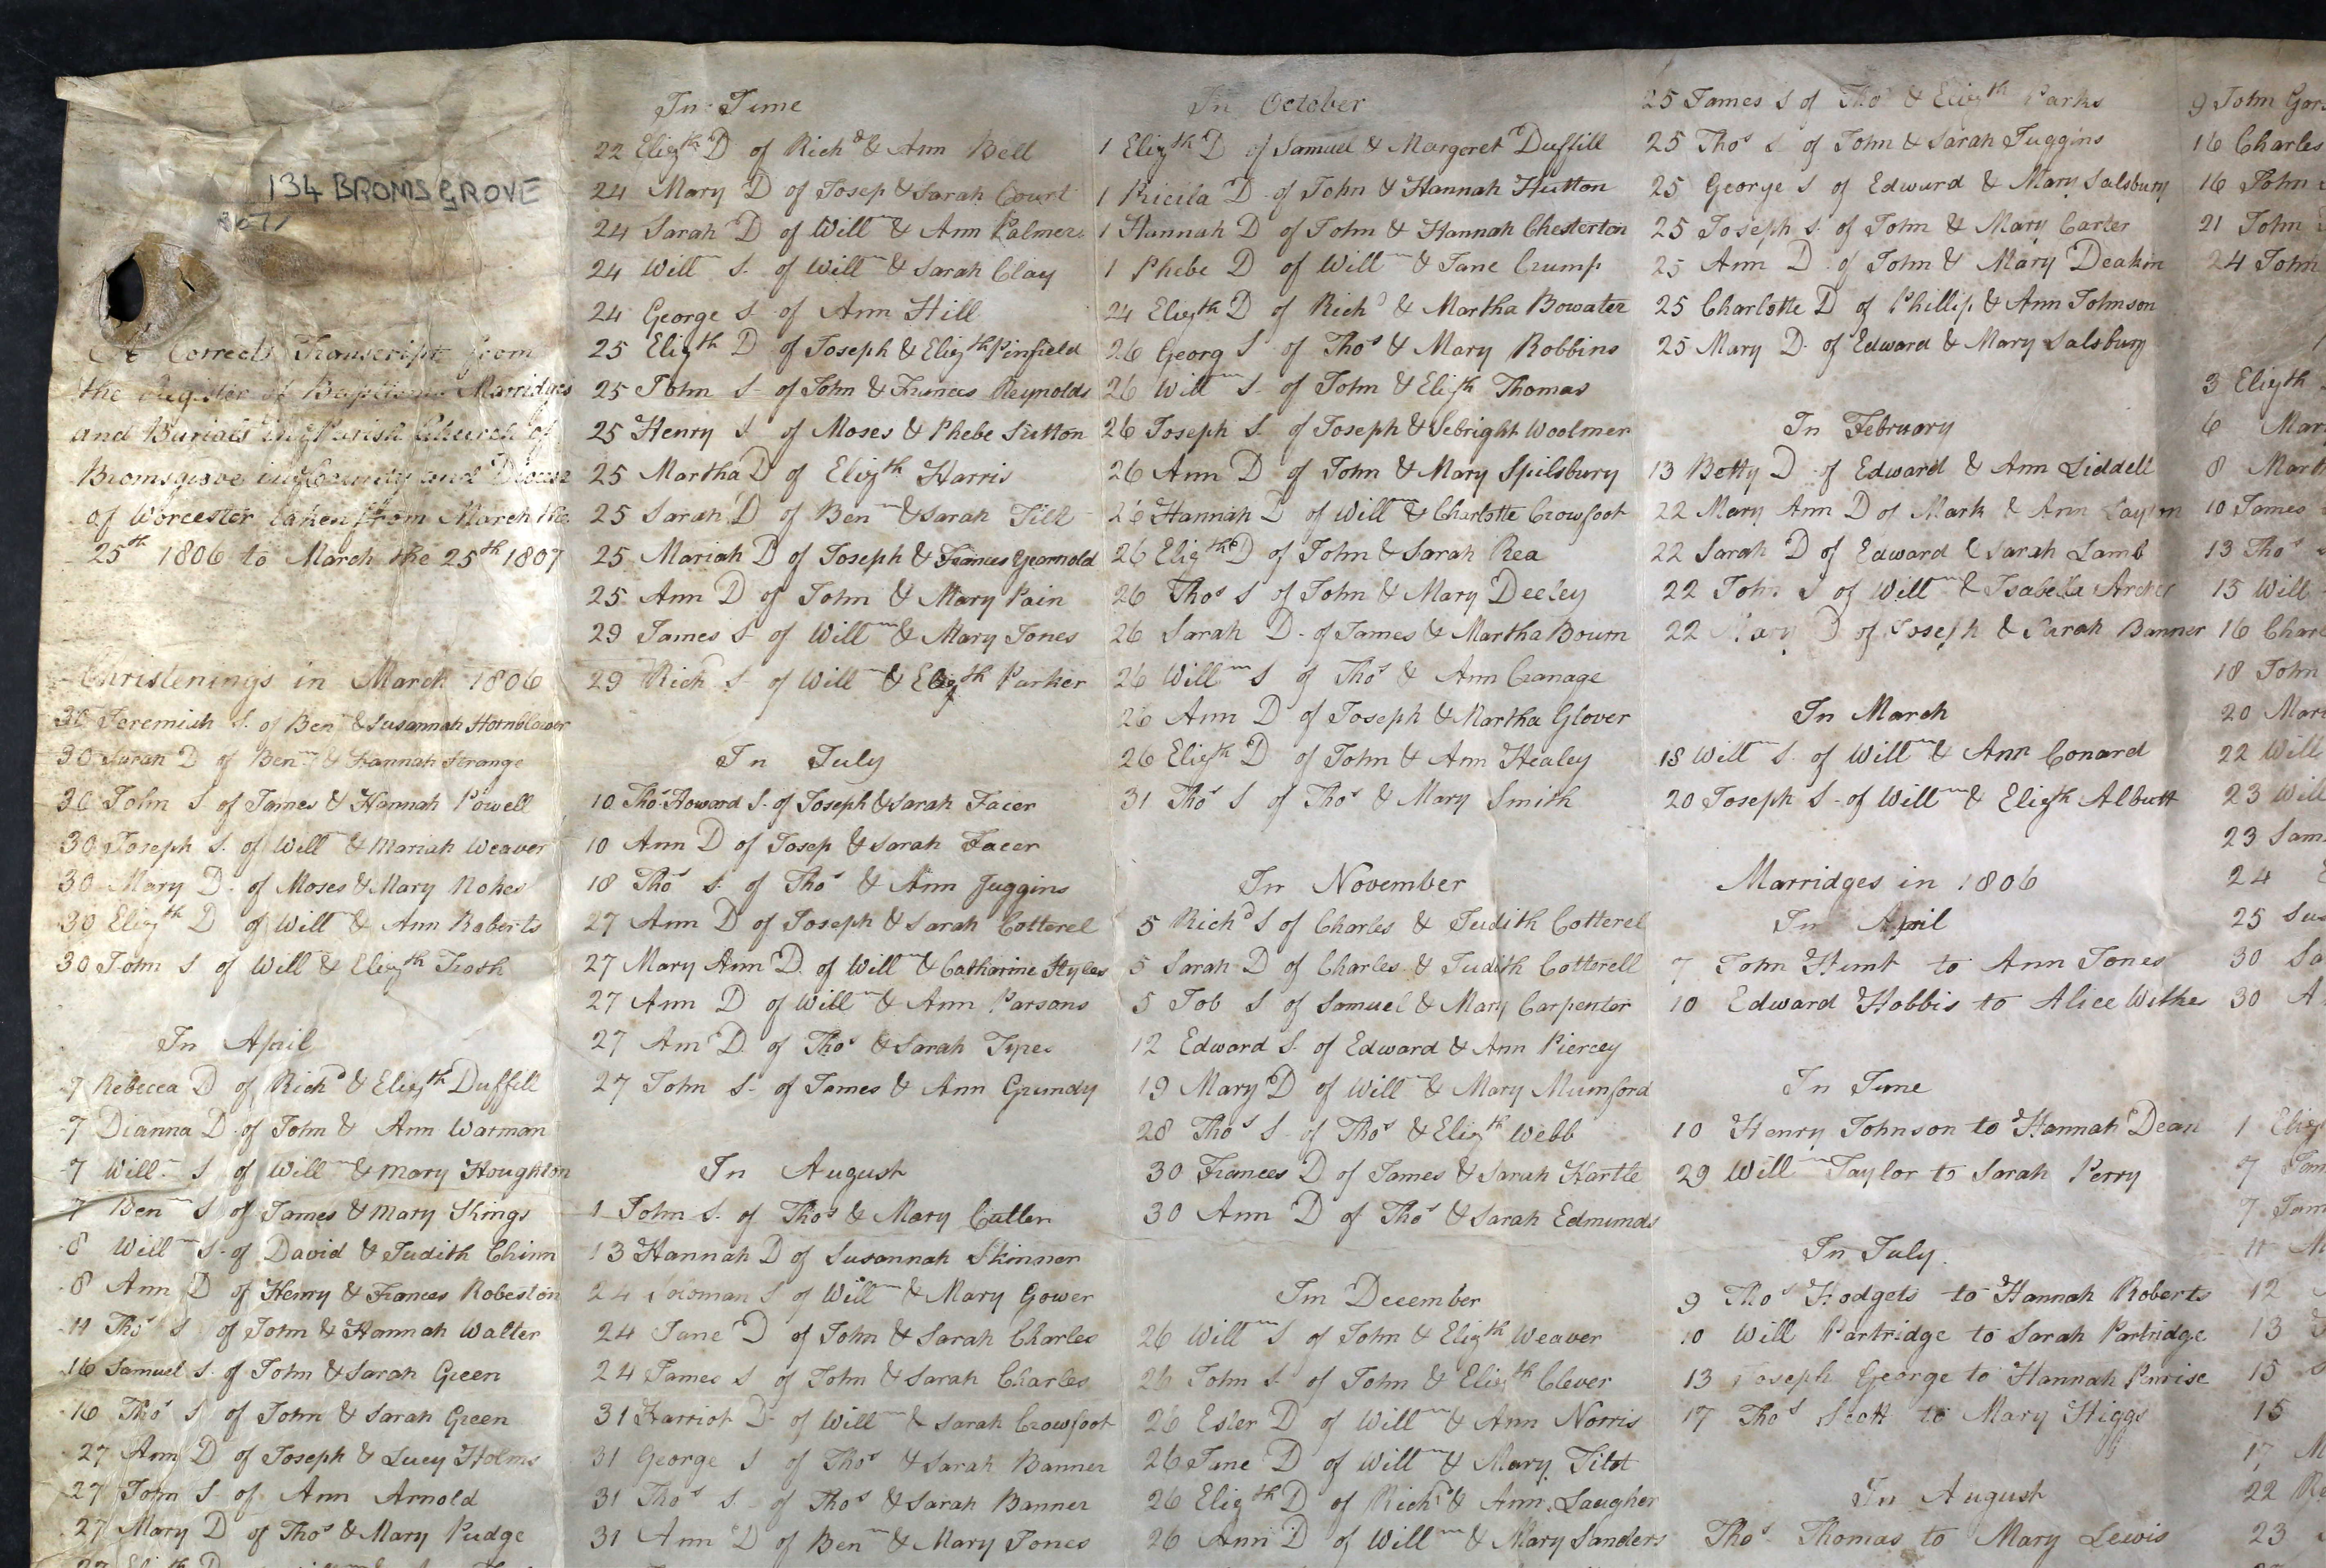 134 BROMSGROVE
A Correct Transcript from
the Register of Baptisms Marridges
and Burials in Parish Church of
Bromsgrove in County and Diocese
of Worcester taken from March the
25th 1806 to March the 25th 1807
Christenings in March 1806
30 Jeremiah S. of Benn & Susannah Hornblower
30 Sarah D of Benn & Hannah Strange
30 John S of James & Hannah Powell
30 Joseph S. of Will & Mariah Weaver
30 Mary D. of Moses & Mary Nokes
30 Eligth D of Will & Ann Roberts
30 John S of Will & Eligth Troth
In April
7 Rebecca D of Richd & Eligth Duffill
7 Dianna D of John & Ann Warman
7 Willm S of Willm & Mary Houghton
7 Benn S of James & Mary Kings
8 Willm S. of David & Judith Chinn
8 Ann D of Henry & Frances Robeston
11 Thos S of John & Hannah Walter
16 Samuel S. of John & Sarah Green
16 Thos S of John & Sarah Green
27 Ann D of Joseph & Lucy Holms
27 John S of Ann Arnold
27 Mary D of Thos & Mary Pudge
In June
22 Eligth D of Richd & Ann Bell
24 Mary D of Josep & Sarah Court
24 Sarah D of Willm & Ann Palmer
24 Willm S. of Willm & Sarah Clay
24 George S. of Ann Hill
25 Eligth D of Joseph & Eligth Pinfield
25 John S. of John & Frances Reynolds
25 Henry S of Moses & Phebe Sutton
25 Martha D of Eligth Harris
25 Sarah D of Benn & Sarah Tilt
25 Mariah D of Joseph & Frances Yearnold
25 Ann D of John & Mary Pain
29 James S. of Willm & Mary Jones
29 Richd S. of Willm & Eligth Parker
In July
10 Thos Howard S. of Joseph & Sarah Facer
10 Ann D of Josep & Sarah Facer
18 Thos S. of Thos & Ann Juggins
27 Ann D of Joseph & Sarah Cotterel
27 Mary Ann D. of Willm & Catharine Styles
27 Ann D of Willm & Ann Parsons
27 Ann D. of Thos & Sarah Tipes
27 John S. of James & Ann Grundy
In August
1 John S. of Thos & Mary Cutler
13 Hannah D of Susannah Skinner
24 Soloman S of Willm & Mary Gower
24 Jane D of John & Sarah Charles
24 James S of John & Sarah Charles
31 Harriot D. of Willm & Sarah Crowfoot
31 George S of Thos & Sarah Banner
31 Thos S. of Thos & Sarah Banner
31 Ann D of Benn & Mary Jones
In October
1 Eligth D of Samuel & Margaret Duffill
1 Pricila D of John & Hannah Hutton
1 Hannah D of John & Hannah Chesterton
1 Phebe D of Willm & Jane Crump
24 Eligth D of Richd & Martha Bowater
26 Georg S of Thos & Mary Robbins
26 Willm S. of John & Eligth Thomas
26 Joseph S. of Joseph & Sebright Woolmer
26 Ann D of John & Mary Spilsbury
26 Hannah D of Willm & Charlotte Crowfoot
26 Eligth D of John & Sarah Rea
26 Thos S of John & Mary Deeley
26 Sarah D. of James & Martha Bourn
26 Willm S of Thos & Ann Cranage
26 Ann D of Joseph & Martha Glover
26 Eligth D of John & Ann Healey
31 Thos S of Thos & Mary Smith
In November
5 Richd S of Charles & Judith Cotterel
5 Sarah D of Charles & Judith Cotterell
5 Job S of Samuel & Mary Carpenter
12 Edward S. of Edward & Ann Piercey
19 Mary D of Willm & Mary Mumford
28 Thos S. of Thos & Eligth Webb
30 Frances D of James & Sarah Hartle
30 Ann D of Thos & Sarah Edmunds
Im December
26 Willm S of John & Eligth Weaver
26 John S. of John & Eligth Clever
26 Ester D of Willm & Ann Norris
26 Jane D of Willm & Mary Tilot
26 Eligth D of Richd & Ann Laugher
26 Ann D of Willm & Mary Sanders
25 James S of Thos & Eligth Parks
25 Thos S of John & Sarah Juggins
25 George S of Edward & Mary Salsbury
25 Joseph S. of John & Mary Carter
25 Ann D of John & Mary Deakin
25 Charlotte D of Phillip & Ann Johnson
25 Mary D. of Edward & Mary Salsbury
In February
13 Botty D of Edward & Ann Liddell
22 Mary Ann D of Mark & Ann Layton
22 Sarah D of Edward & Sarah Lamb
22 John S of Willm & Isabella Archer
22 Mary D of Joseph & Sarah Banner
In March
18 Willm S. of Willm & Ann Conard
20 Joseph S. of Willm & Eligth Albutt
Marridges in 1806
In April
7 John Hunt to Ann Jones
10 Edward Hobbis to Alice Withe
In June
10 Henry Johnson to Hannah Dean
29 Willm Taylor to Sarah Perry
In July
9 Thos Hodgets to Hannah Roberts
10 Will Partridge to Sarah Partridge
13 Joseph George to Hannah Pnrise
17 Thos Scott to Mary Higgs
In August
Thos Thomas to Mary Lewis
9 John
16 Charles
16 John
21 John
24 John
3 Eligth
6 Mar
8 Mart
10 James
13 Thos
15 Will
16 Charl
18 John
20 Mar
22 Will
23 Will
23 Sam
24
25 Su
30 Sa
30 A
1 Elig
7 Jam
7 Jam
11
12
13
15
15
17 M
22 Re
23